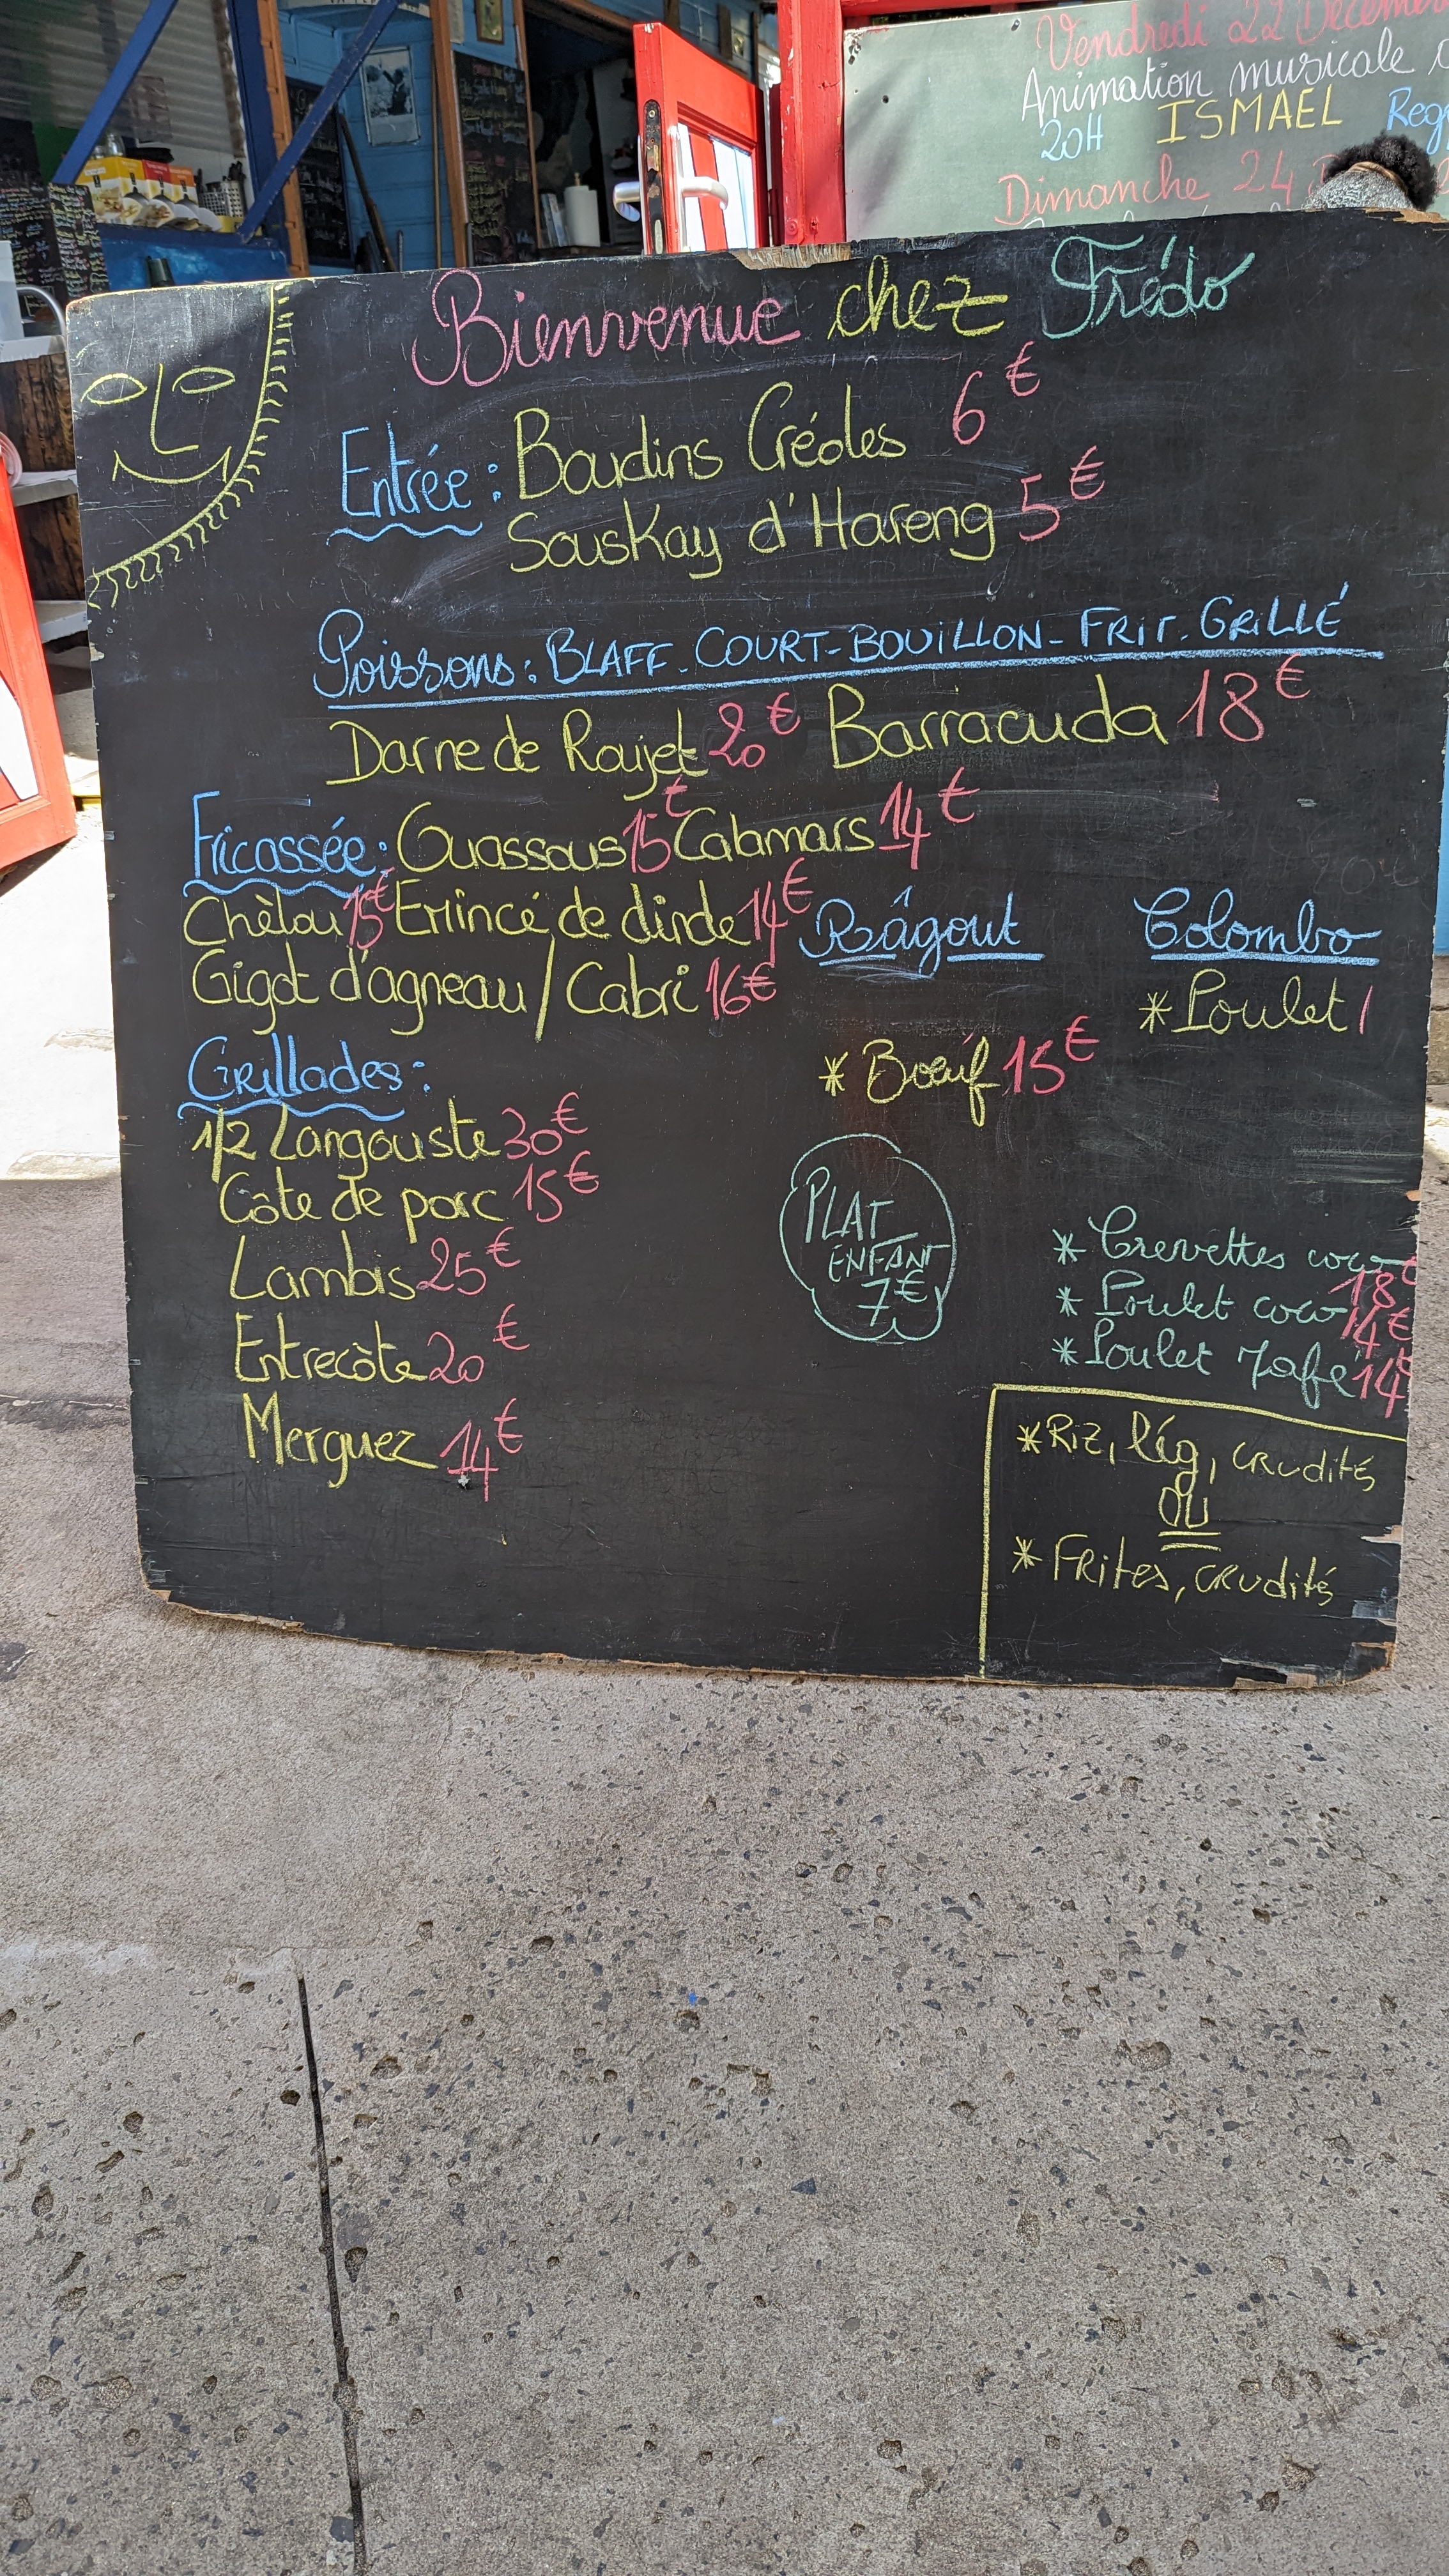 Vendredi 22 Décembre
Animation musicale
20H ISMAEL
Dimanche 24
Bienvenue chez Frédo
Entrée : Boudins Créoles 6€
SousKay d'Hareng 5€
Poissons : BLAFF - COURT-BOUILLON - FRIT - GRILLÉ
Darne de Roujet 20€ Barracuda 18€
Fricassée : Ouassous 15€ Calamars 14€
Chèlou 15€ Emincé de dinde 14€
Gigot d'agneau / Cabri 16€
Râgout
* Boeuf 15€
Colombo
* Poulet 1
Grillades :
1/2 Langouste 30€
Côte de porc 15€
Lambis 25€
Entrecôte 20€
Merguez 14€
PLAT
ENFANT
7€
* Crevettes coco 18€
* Poulet coco 14€
* Poulet Mafé 14€
* Riz, lég, crudités
OU
* Frites, crudités